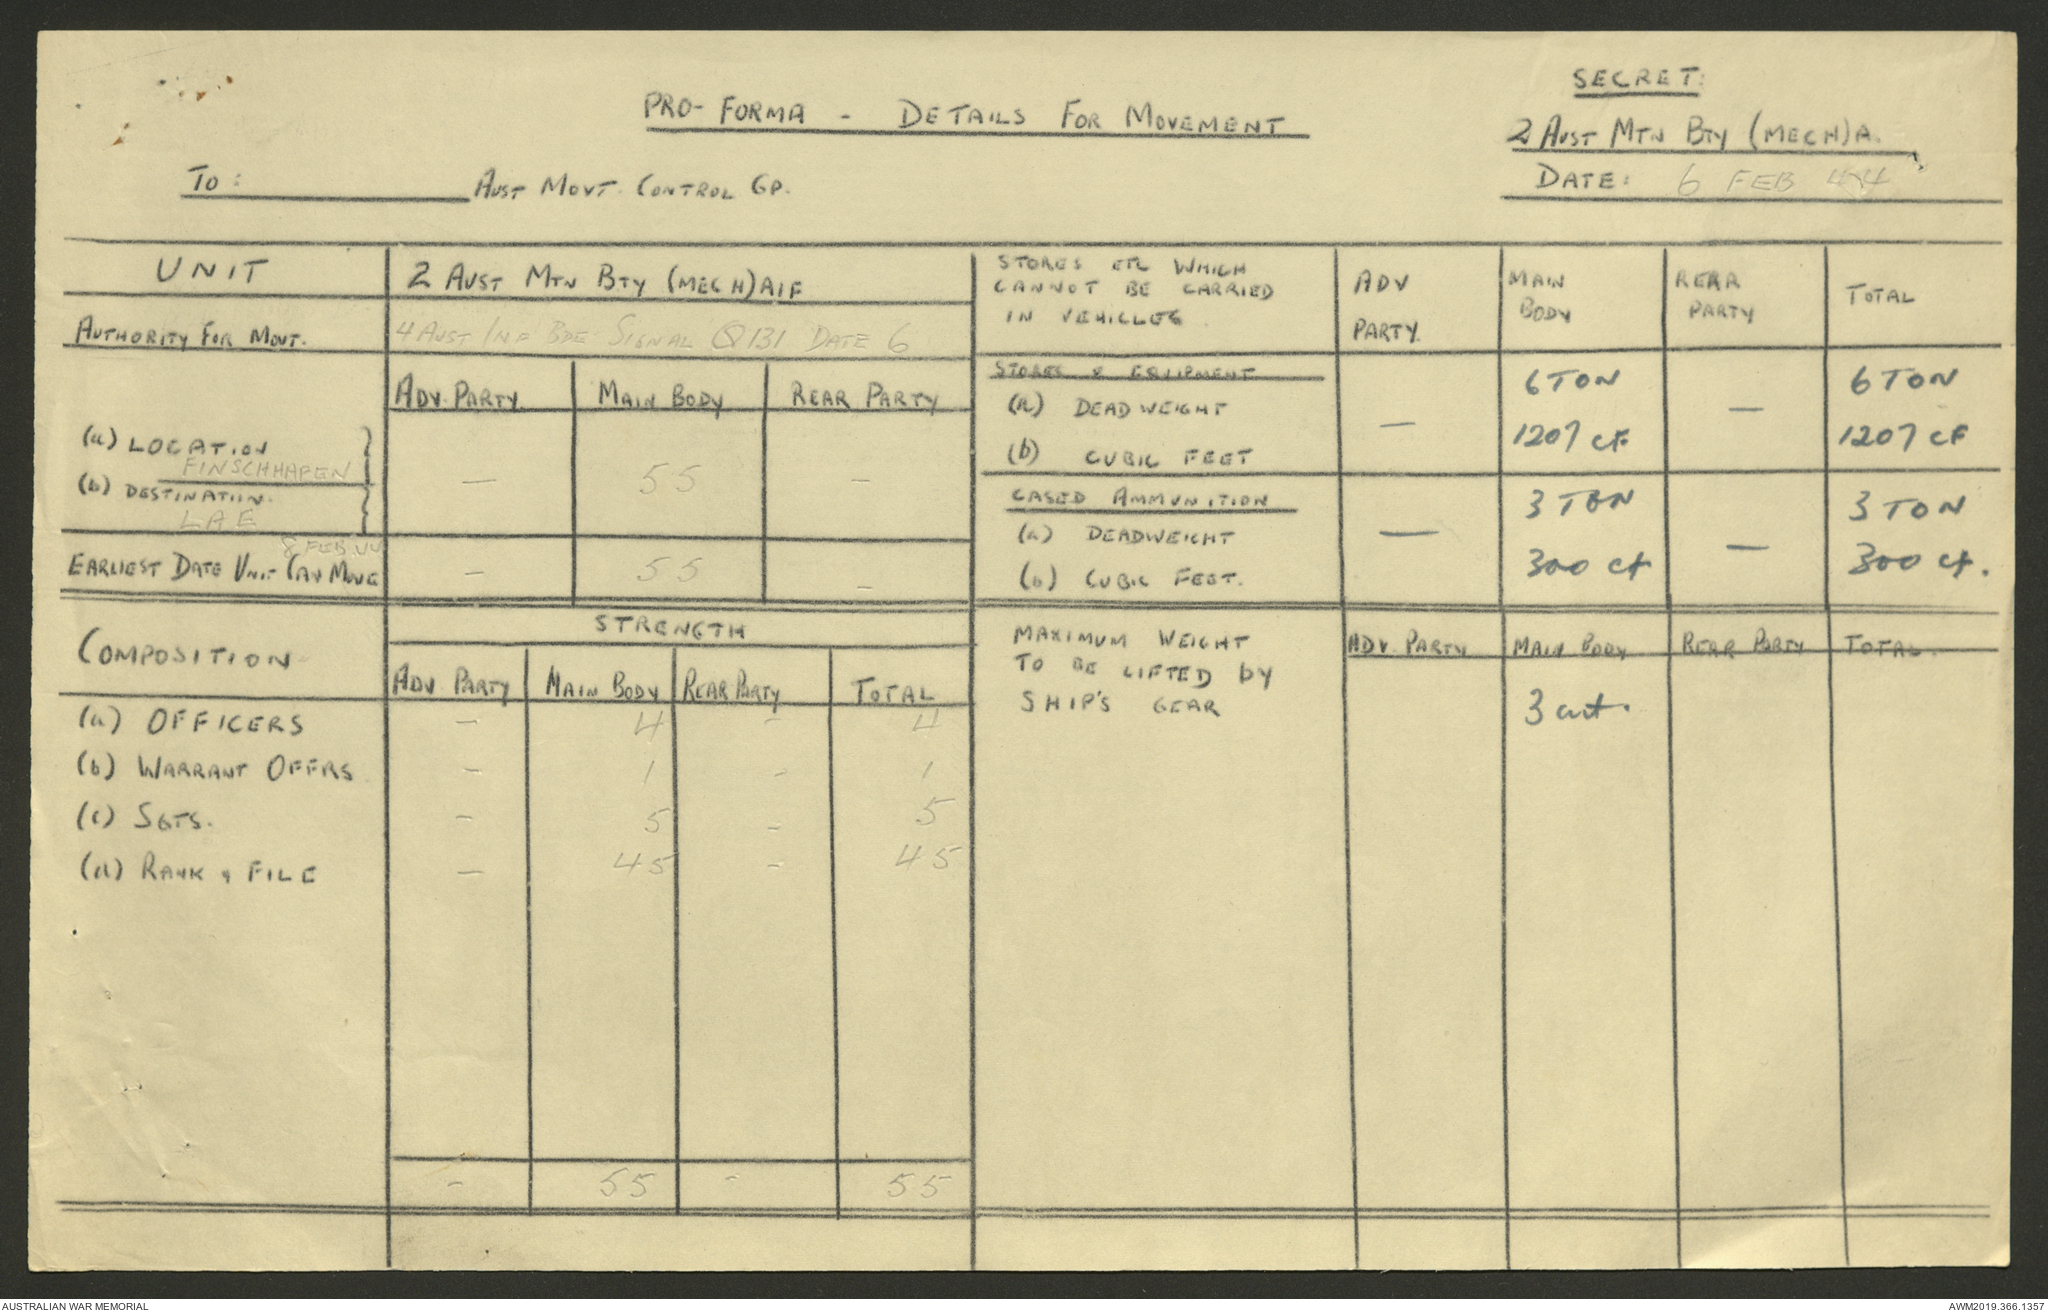 SECRET:
PRO-FORMA - DETAILS FOR MOVEMENT
2 AUST MTN BTY (MECH)A.
TO: AUST MOVT. CONTROL GP.
DATE: 6 FEB 44
UNIT
2 AUST MTN BTY (MECH)AIF
AUTHORITY FOR MOVT.
4 AUST INF BDE SIGNAL Q131 DATE 6
ADV. PARTY MAIN BODY REAR PARTY
(a) LOCATION
FINSCHHAFEN
— 55 —
(b) DESTINATION.
LAE
8 FEB 44
EARLIEST DATE UNIT CAN MOVE
— 55 —
STORES ETC WHICH
CANNOT BE CARRIED
IN VEHICLES.
ADV
PARTY.
MAIN
BODY
REAR
PARTY
TOTAL
STORES & EQUIPMENT
(a) DEADWEIGHT
— 6 TON — 6 TON
(b) CUBIC FEET
1207 CF 1207 CF
CASED AMMUNITION
(a) DEADWEIGHT
— 3 TON — 3 TON
(b) CUBIC FEET.
300 cf 300 cf.
COMPOSITION
STRENGTH
ADV PARTY MAIN BODY REAR PARTY TOTAL
(a) OFFICERS — 4 — 4
(b) WARRANT OFFRS — 1 — 1
(c) SGTS. — 5 — 5
(d) RANK & FILE — 45 — 45
- 55 - 55
MAXIMUM WEIGHT
TO BE LIFTED BY
SHIP'S GEAR
ADV. PARTY MAIN BODY REAR PARTY TOTAL.
3 cwt.
AUSTRALIAN WAR MEMORIAL
AWM2019.366.1357